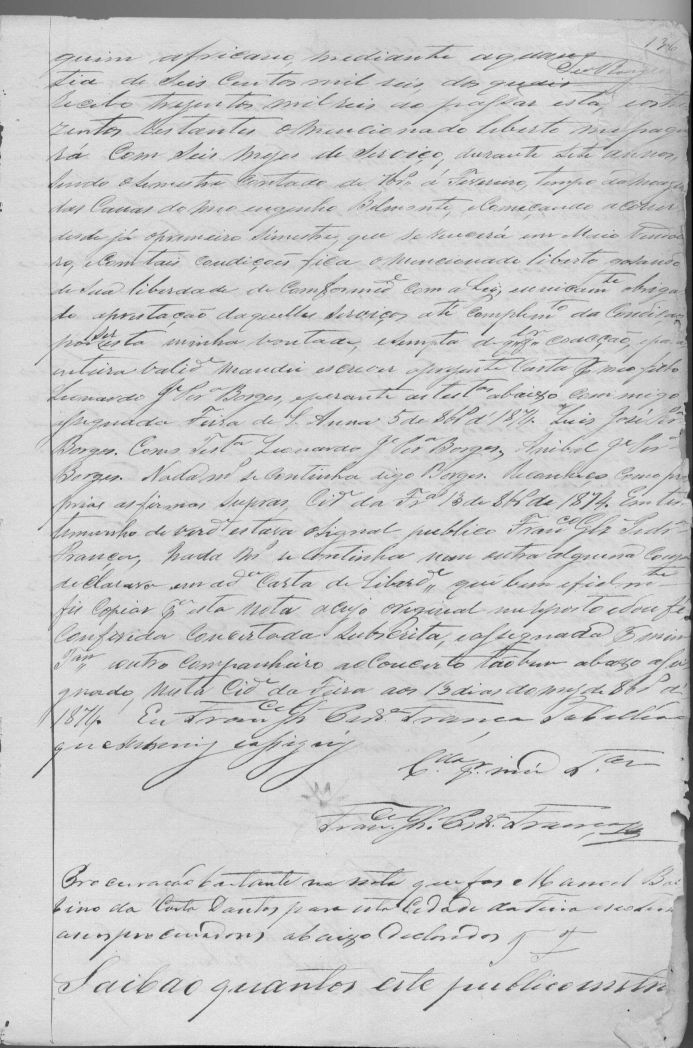 136
quim africano, mediante a quan
tia de Seis Centos mil reis, dos quais
recebo trezentos mil reis ao passar esta, e os tre
zentos restantes o mencionado liberto me paga
rá com seis mezes de serviço, durante sete annos,
sendo o semestre contado de á Fevereiro, tempo da moagem
das Cannas do meo engenho Belmonte, e começando a correr
desde já o primeiro simestre, que se vencerá em Maio vindou
ro, e com tais condicções fica o mencionado liberto gosando
de sua liberdade de conformide com a Lei, e unicamte obriga
do a prestação daquelles serviços até complemto da condição,
por ser esta minha vontade, e isempta de qualqr coacção, e para
inteira valide mandei escrever a prezente Carta pr meo filho
Leonardo Je Perª Borges, e perante as testas abaixo commigo
assignadas Feira de S. Anna 5 de 8bro de 1874. Luis José Perª
Borges. Como Testª Leonardo Je Perª Borges, Anibal Je Perª
Borges. Nada ms se continha digo Borges. Reconheço como pro
prias as firmas supras, Cide da Frª 13 de 8bro de 1874. Em tes
temunho de verde estava o signal publico Franco Glz Pedrª
França, Nada ms se continha nem outra alguma Cousa
declarava em a dª Carta de Liberde, que bem e fielmte
fis copiar pª esta nota a cujo original me reporto e dou fé
conferida concertada subscrita, e assignada pr mim
Tam e outro companheiro ao concerto tãobem abaixo assi
gnado, nesta Cide da Feira aos 13 dias do mez de 8bro de
1874. Eu Franco Glz Pedrª França Tabellião
que subscrevi e assignei
C.da pr mim Tam
Franco Glz Pedrª França
Procuração bastante na nota que fas Manoel Bal
bino da Costa Dantas para esta Cidade da Feira
a seos procuradores abaixo declarados
Saibão quantos este publico instru